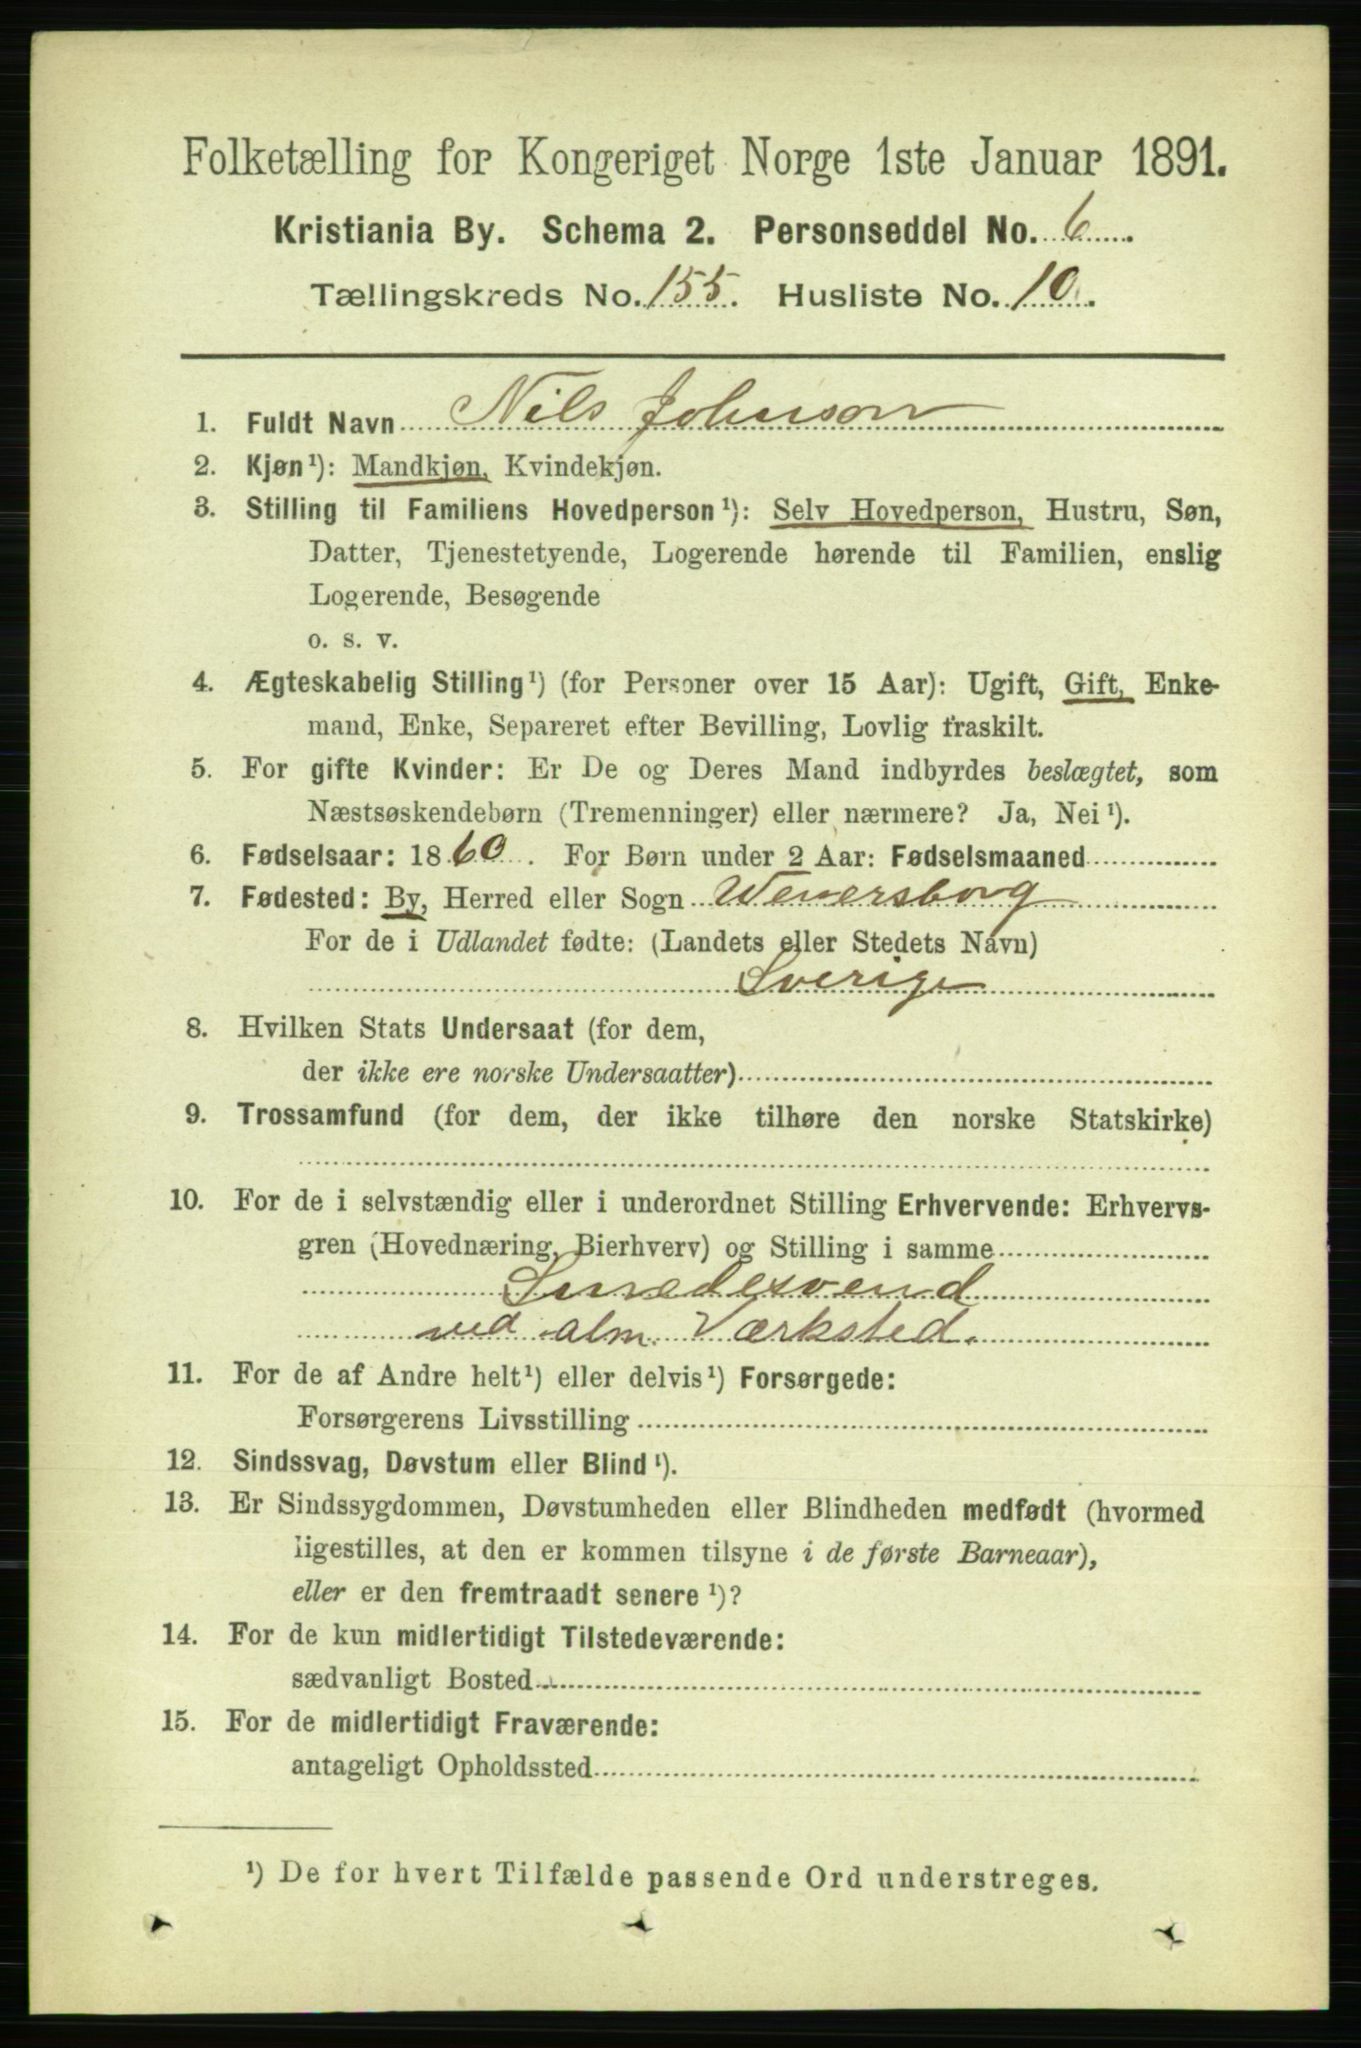 Folketælling for Kongeriget Norge 1ste Januar 1891.
Kristiania By. Schema 2. Personseddel No. 6.
Tællingskreds No. 155. Husliste No. 10.
1. Fuldt Navn Nils Johnson
2. Kjøn¹): Mandkjøn, Kvindekjøn.
3. Stilling til Familiens Hovedperson¹): Selv Hovedperson, Hustru, Søn,
Datter, Tjenestetyende, Logerende hørende til Familien, enslig
Logerende, Besøgende
o. s. v.
4. Ægteskabelig Stilling¹) (for Personer over 15 Aar): Ugift, Gift, Enke-
mand, Enke, Separeret efter Bevilling, Lovlig fraskilt.
5. For gifte Kvinder: Er De og Deres Mand indbyrdes beslægtet, som
Næstsøskendebørn (Tremenninger) eller nærmere? Ja, Nei¹).
6. Fødselsaar: 1860. For Børn under 2 Aar: Fødselsmaaned
7. Fødested: By, Herred eller Sogn Wenersborg
For de i Udlandet fødte: (Landets eller Stedets Navn)
Sverige
8. Hvilken Stats Undersaat (for dem,
der ikke ere norske Undersaatter)
9. Trossamfund (for dem, der ikke tilhøre den norske Statskirke)
10. For de i selvstændig eller i underordnet Stilling Erhvervende: Erhvervs-
gren (Hovednæring, Bierhverv) og Stilling i samme
Smedesvend
ved alm. Værksted.
11. For de af Andre helt¹) eller delvis¹) Forsørgede:
Forsørgerens Livsstilling
12. Sindssvag, Døvstum eller Blind¹).
13. Er Sindssygdommen, Døvstumheden eller Blindheden medfødt (hvormed
ligestilles, at den er kommen tilsyne i de første Barneaar),
eller er den fremtraadt senere¹)?
14. For de kun midlertidigt Tilstedeværende:
sædvanligt Bosted
15. For de midlertidigt Fraværende:
antageligt Opholdssted
¹) De for hvert Tilfælde passende Ord understreges.